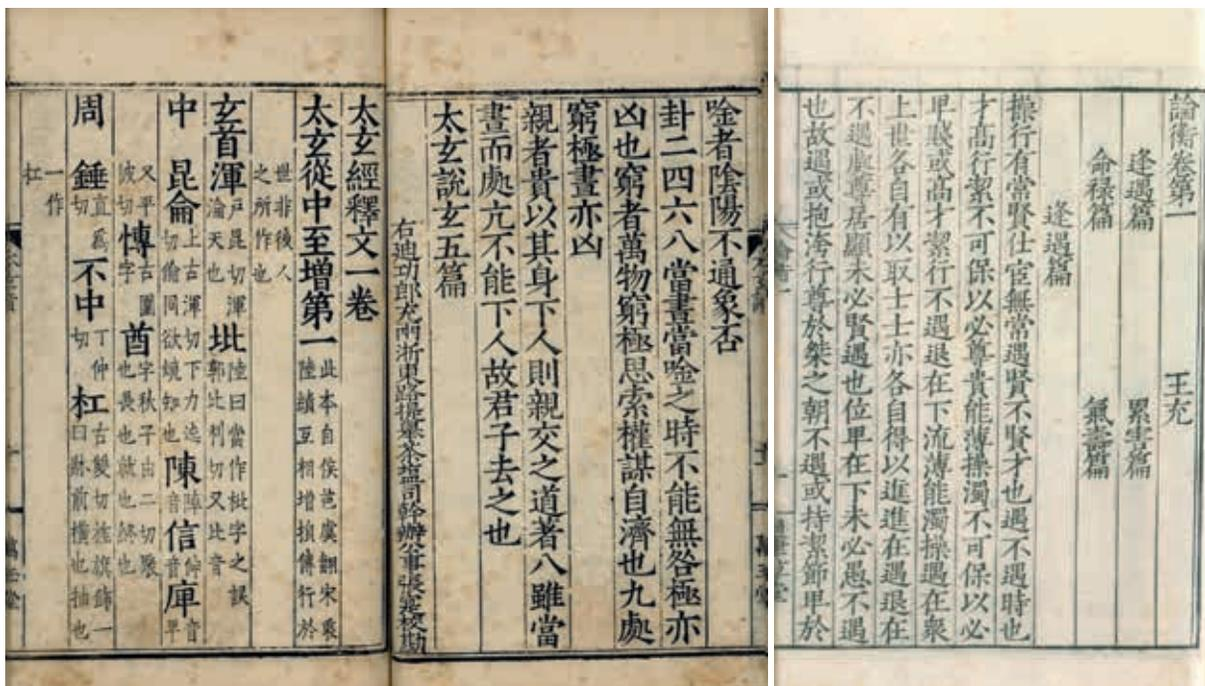 論衡卷第一 王充
逢遇篇 累害篇
命祿篇 氣壽篇
逢遇篇
操行有常賢仕宦無常遇賢不賢才也遇不遇時也
才高行潔不可保以必尊貴能薄操濁不可保以必
卑賤或高才潔行不遇退在下流薄能濁操遇在衆
上世各自有以取士士亦各自得以進進在遇退在
不遇處尊居顯未必賢遇也位卑在下未必愚不遇
也故遇或抱洿行尊於桀之朝不遇或持潔節卑於
唫者陰陽不通象否
卦二四六八當晝當唫之時不能無咎極亦
凶也窮者萬物窮極思索權謀自濟也九處
窮極晝亦凶
親者貴以其身下人則親交之道著八雖當
晝而處亢不能下人故君子去之也
太玄說玄五篇
右迪功郎充兩浙東路提舉茶塩司幹辦公事張寔校勘
太玄經釋文一卷
太玄從中至增第一 此本自侯芭虞翻宋衷陸績互相增損傳行於
世非後人之所作也
玄首渾 戶昆切渾淪天也 玼 陸曰當作枇字之誤郭比列切又比音
中 昆侖 上古渾切下力迍切倫同欲曉知也 陳 音陣 信 音 庫 音卑
又平彼切 慱 古團字 酋 秋字由二切聚也畏也就也終也
周 錘 直為切 不中 丁仲切 杠 古雙切旌旗飾一曰牀前橫也抽也
一作杠